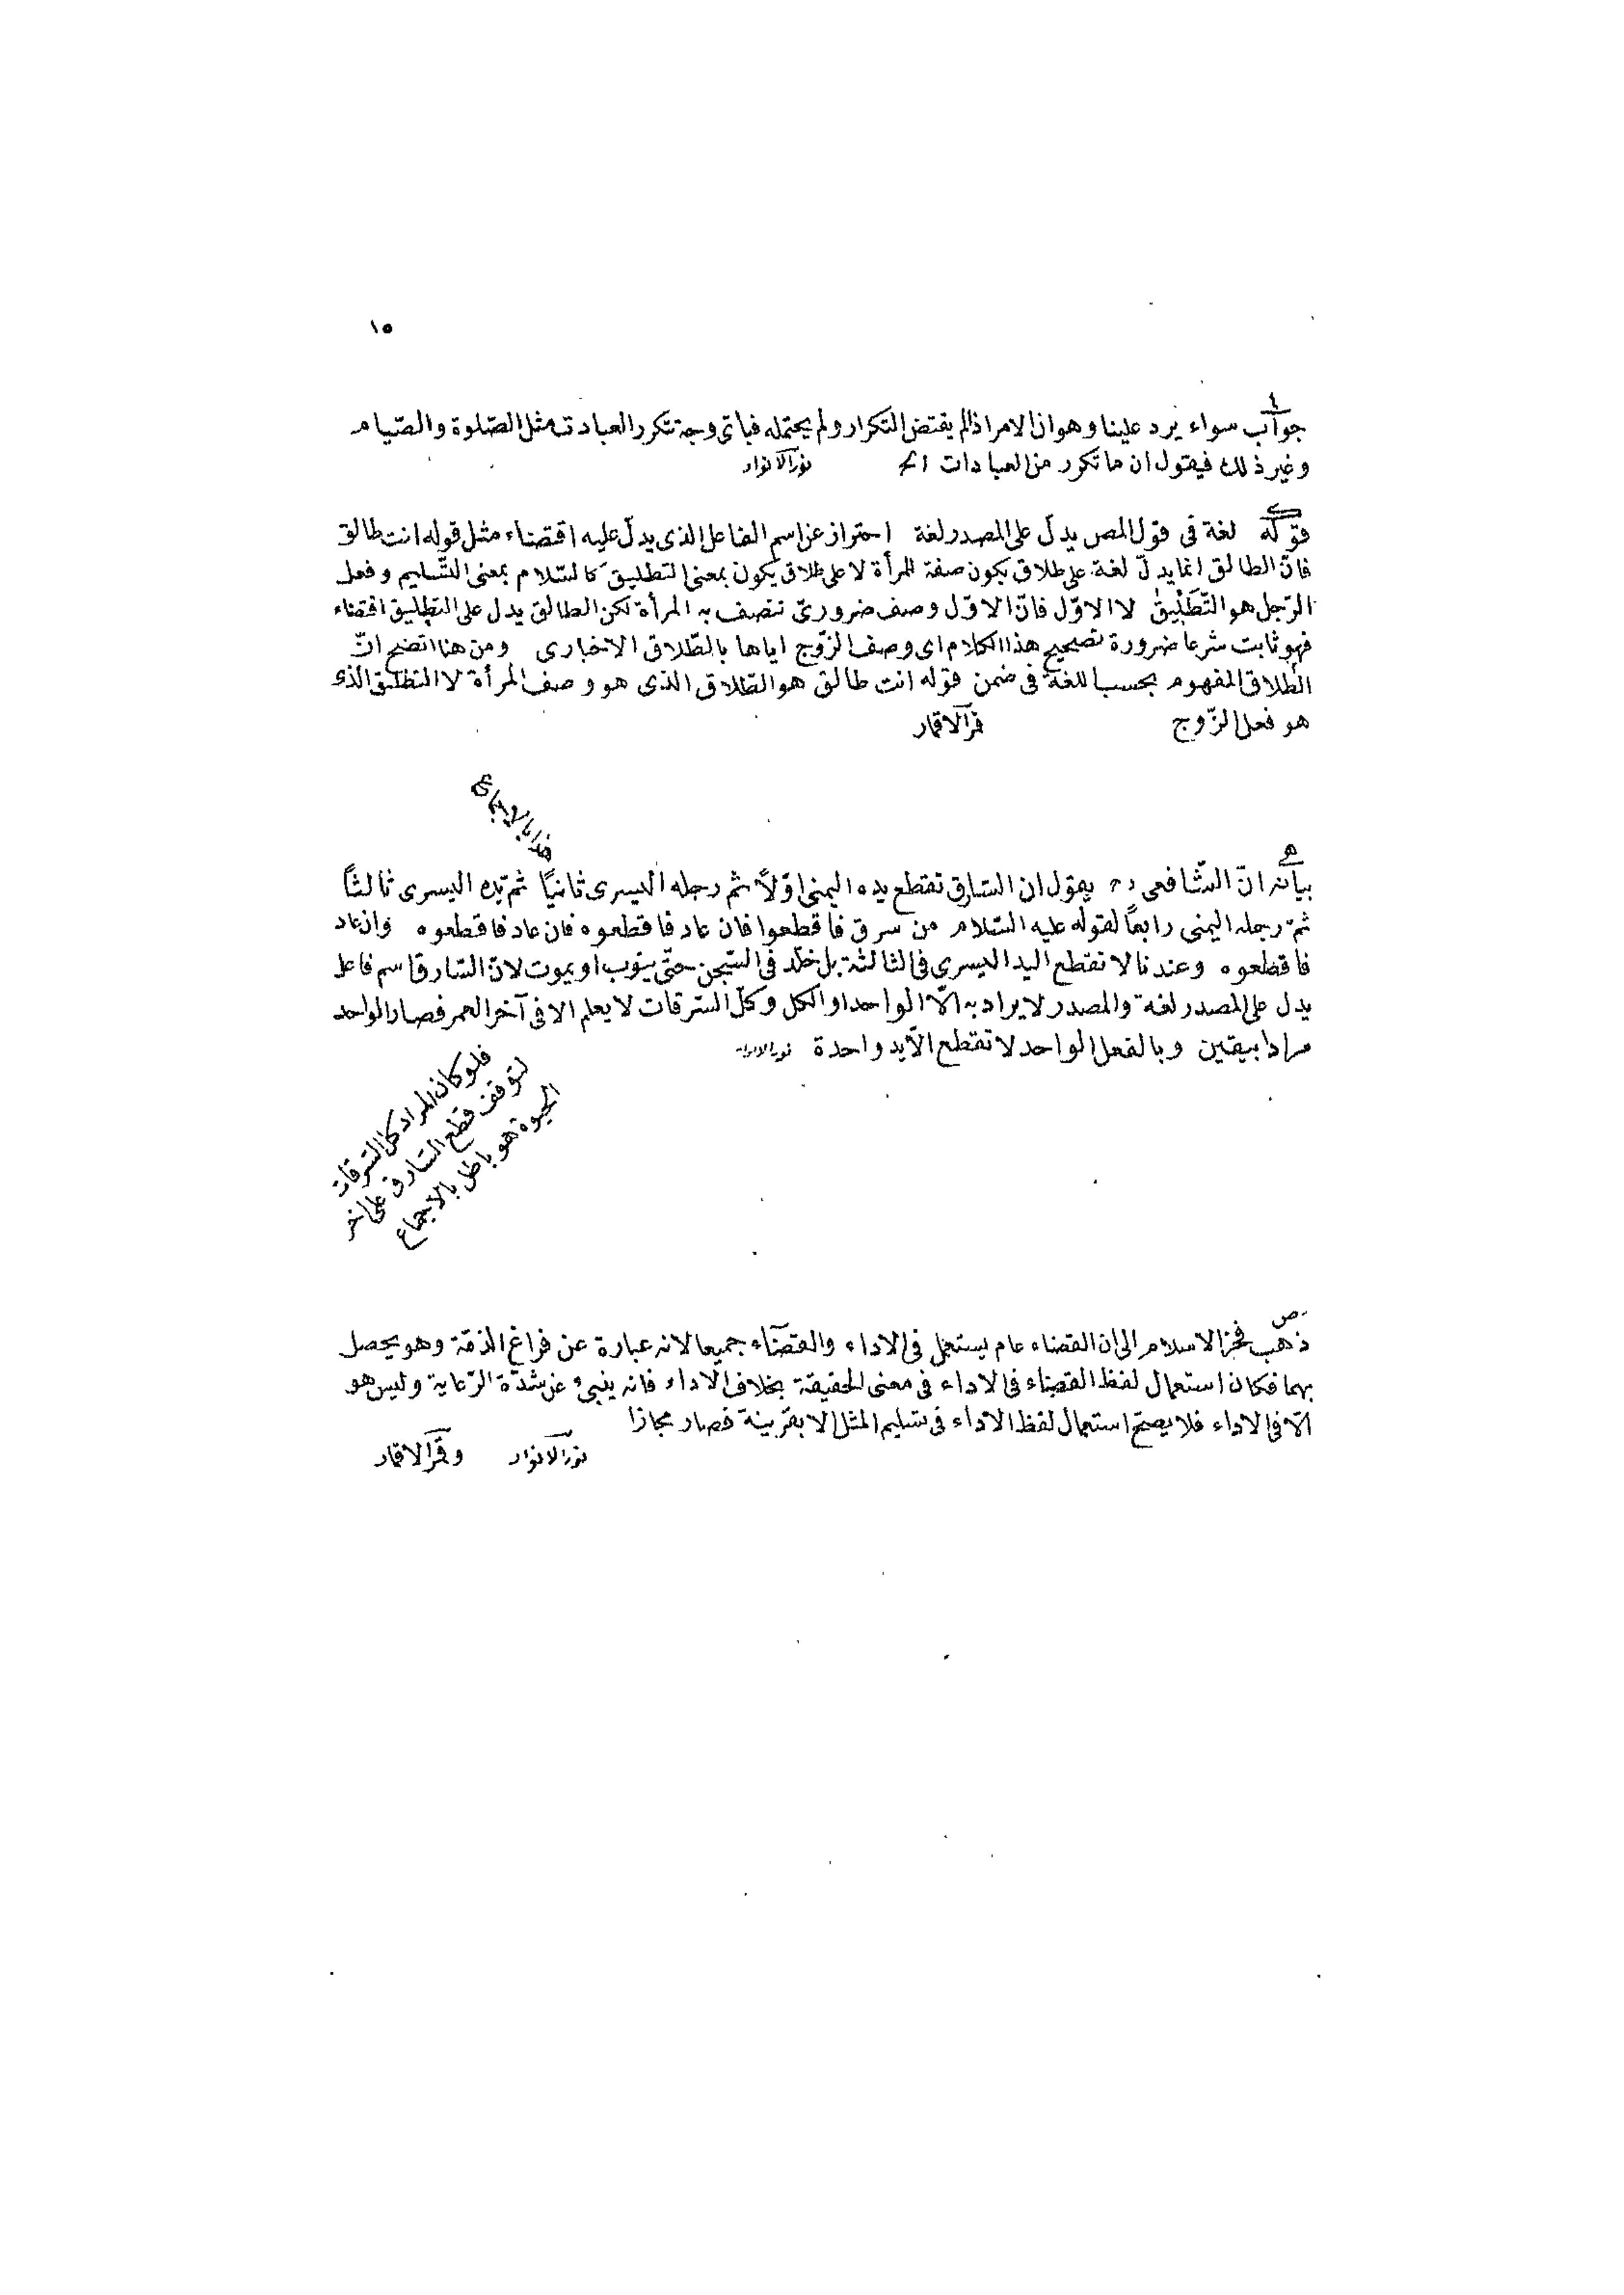 ١٥
جواب سواء يرد علينا وهو ان الامر اذا لم يقتض التكرار ولم يحتمله فباى وجه تتكرر العبادات مثل الصّلوة والصّيام
وغير ذلك فيقول ان ما تكرر من العبادات الخ نور الانوار
قوله لغة فى قول المص يدلّ على المصدر لغة احتراز عن اسم الفاعل الذى يدلّ عليه اقتضاء مثل قوله انت طالق
فانّ الطالق انما يدلّ لغة على طلاق يكون صفة للمرأة لا على طلاق يكون بمعنى التطليق كالسّلام بمعنى التّسليم وفعل
الرّجل هو التّطليق لا الاوّل فانّ الاوّل وصف ضرورىّ تتصف به المرأة لكن الطالق يدل على التطليق اقتضاء
فهو ثابت شرعا ضرورة تصحيح هذا الكلام اى وصف الزّوج اياها بالطّلاق الاخبارى ومن هنا اتضح انّ
الطّلاق المفهوم بحسب اللغة فى ضمن قوله انت طالق هو الطّلاق الذى هو وصف المرأة لا التطليق الذى
هو فعل الزّوج قمر الاقمار
بيانه انّ الشّافعى رح يقول ان السّارق تقطع يده اليمنى اوّلاً ثم رجله اليسرى ثانيًا ثم يده اليسرى ثالثاً
ثمّ رجله اليمنى رابعًا لقوله عليه السّلام من سرق فاقطعوا فان عاد فاقطعوه فان عاد فاقطعوه وان عاد
فاقطعوه وعندنا لا تقطع اليد اليسرى فى الثالثة بل خلّد فى السّجن حتّى يتوب او يموت لانّ السّارق اسم فاعل
يدل على المصدر لغة والمصدر لا يراد به الّا الواحد او الكل وكلّ السّرقات لا يعلم الا فى آخر العمر فصار الواحد
مرادا بيقين وبالفعل الواحد لا تقطع الّا يد واحدة نور الانوار
فلو كان المراد كل السّرقات
لتوقف قطع السّارق على اخر
الحيوة هو باطل بالاجماع
ص
ذهب فخر الاسلام الى ان القضاء عام يستعمل فى الاداء والقضاء جميعا لانه عبارة عن فراغ الذمّة وهو يحصل
بهما فكان استعمال لفظ القضاء فى الاداء فى معنى الحقيقة بخلاف الاداء فانه ينبئ عن شدّة الرّعاية وليس هو
الّا فى الاداء فلا يصحّ استعمال لفظ الاداء فى تسليم المثل الا بقرينة فصار مجازا
نور الانوار وقمر الاقمار